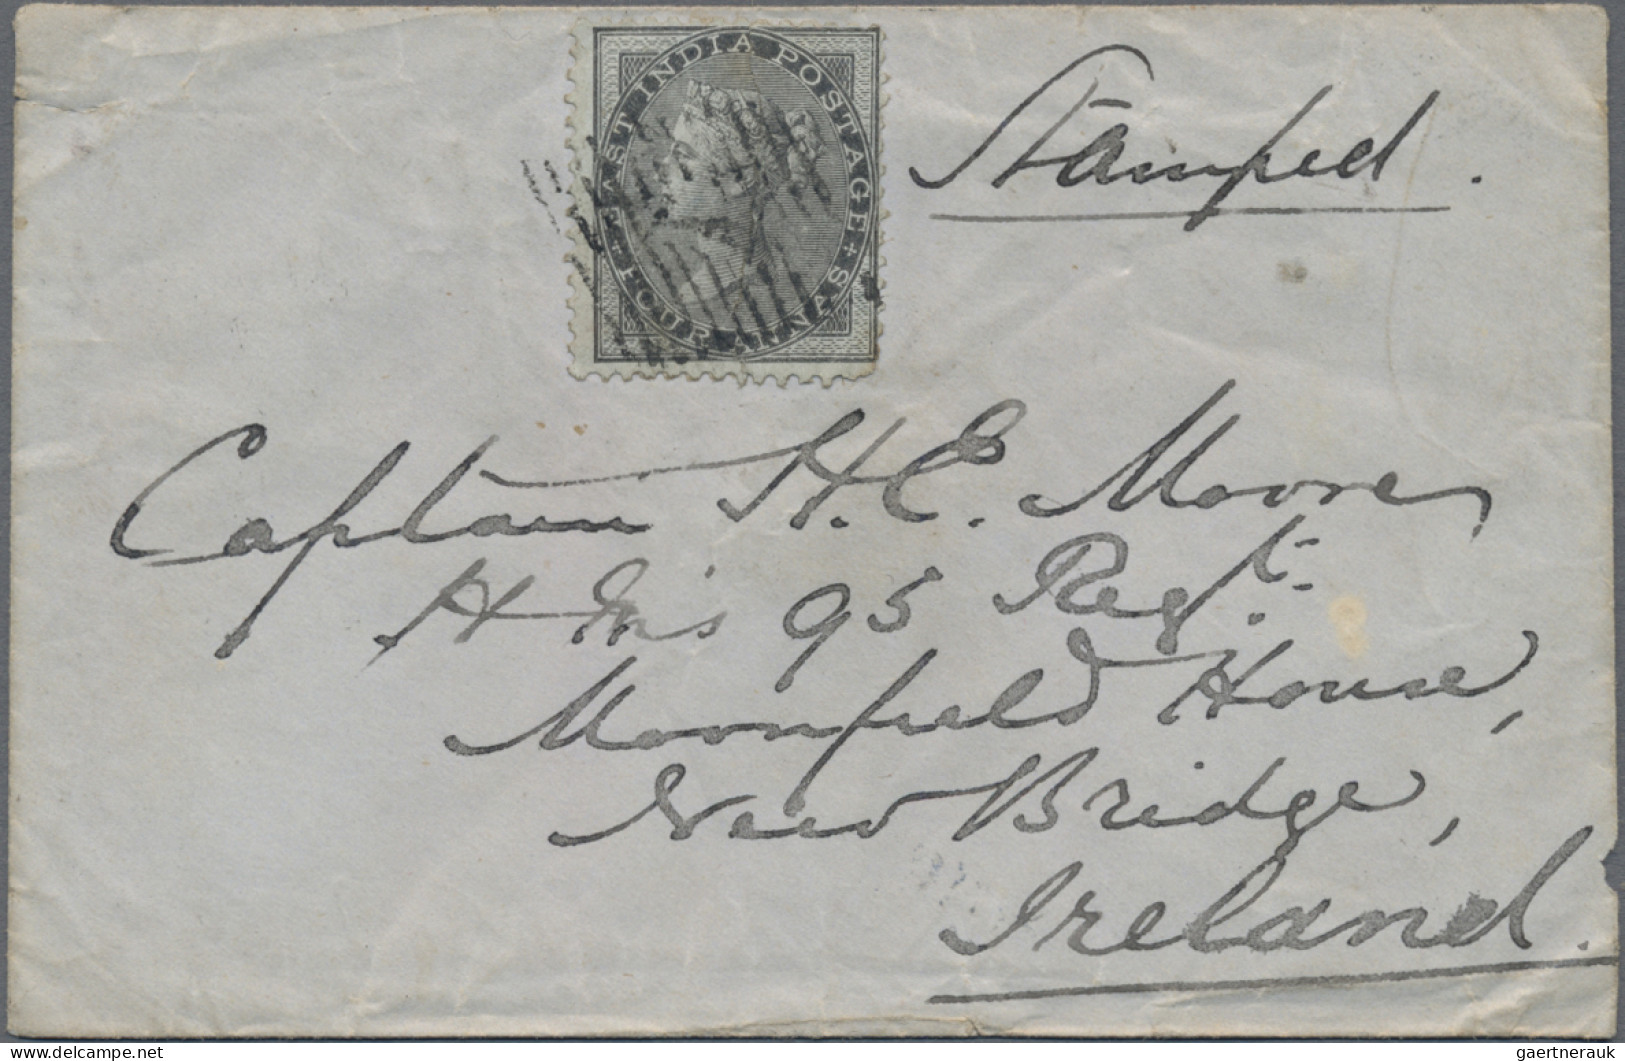 EAST INDIA POSTAGE
FOUR ANNAS
Stamped.
Captain H. E. Moore,
H Ms 95 Regt.
Moorfield House,
New Bridge,
Ireland.
www.delcampe.net
gaertnerauk